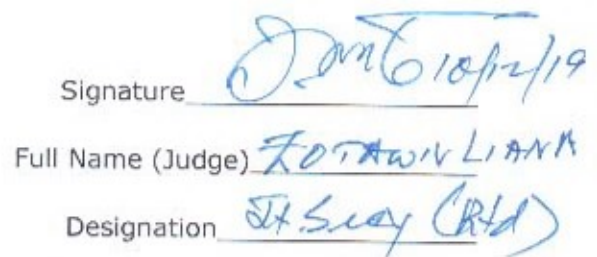 Signature 10/12/19
Full Name (Judge) ZOTHAWN LIANA
Designation Jt. Secy (Rtd)